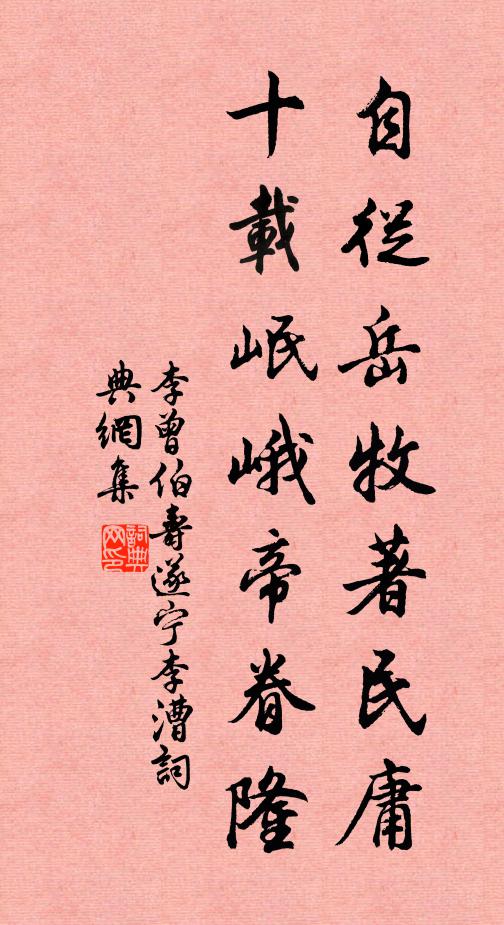 自從岳牧著民庸
十載岷峨帝眷隆
李曾伯壽遂宁李漕詞
典網集
詞典
网印